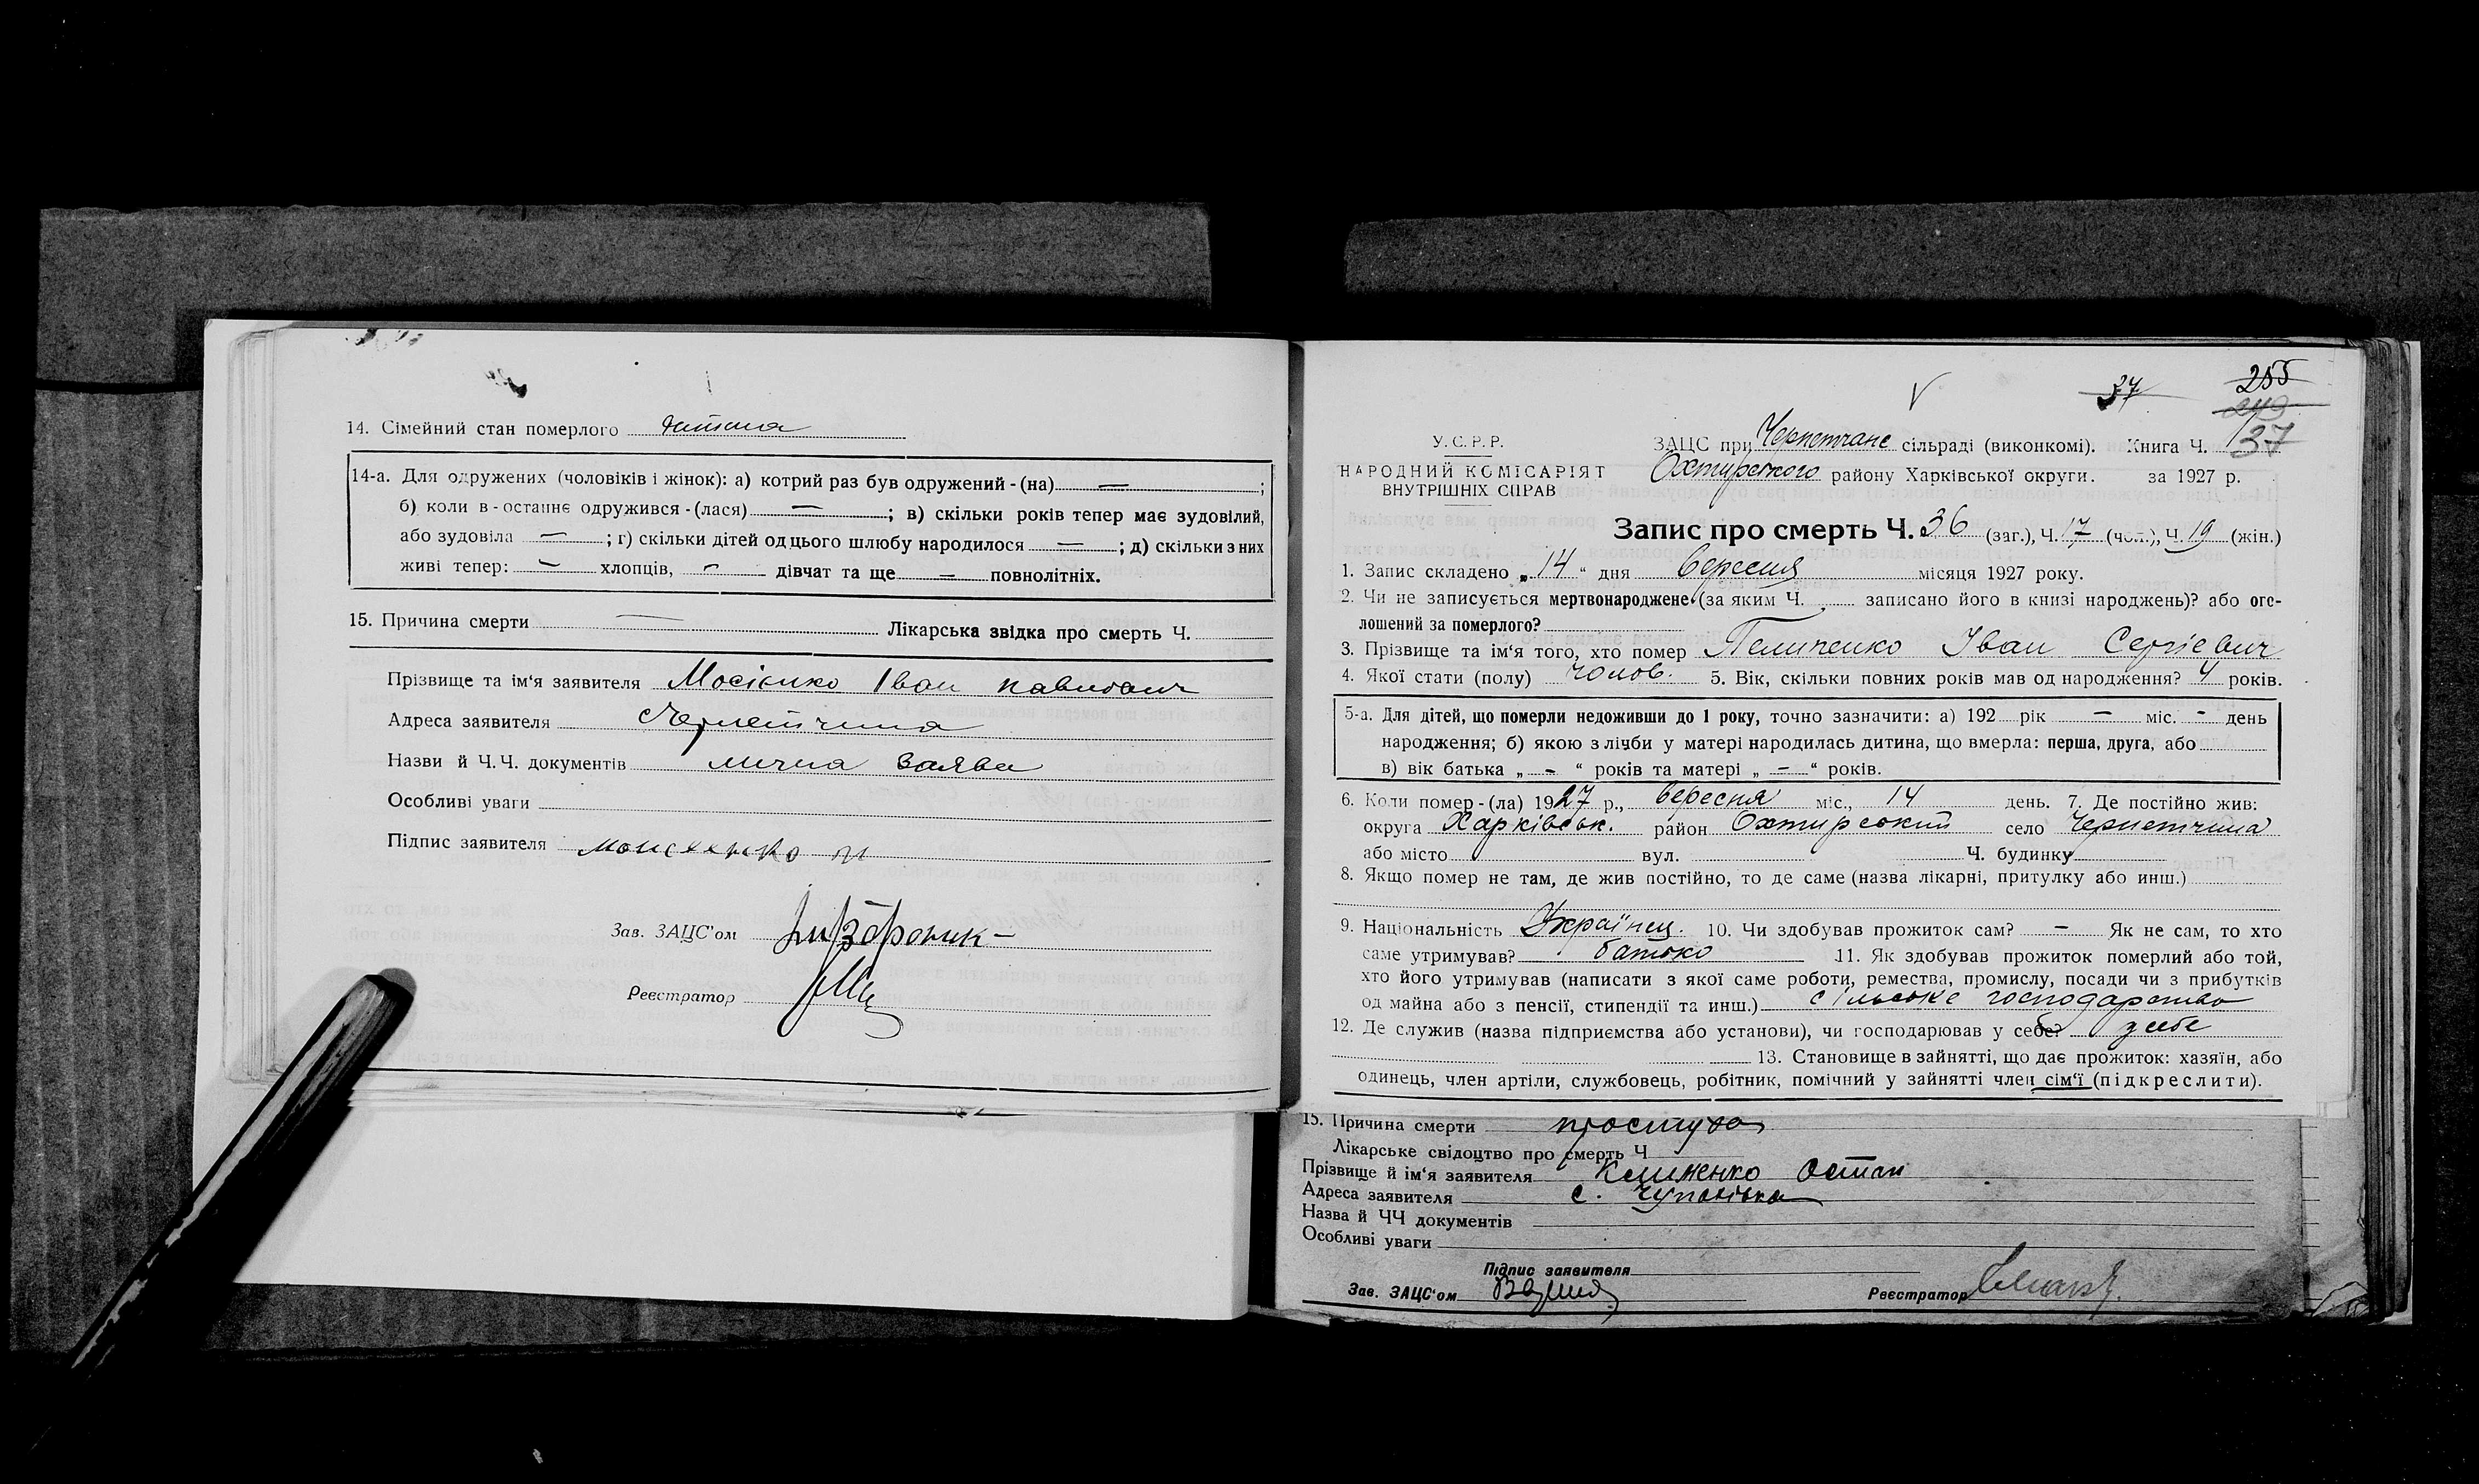 14. Сімейний стан померлого дитина
14-а. Для одружених (чоловіків і жінок): а) котрий раз був одружений - (на) — ;
б) коли в - останнє одружився - (лася) — ; в) скільки років тепер має зудовілий,
або зудовіла — ; г) скільки дітей од цього шлюбу народилося — ; д) скільки з них
живі тепер: — хлопців, — дівчат та ще — повнолітніх.
15. Причина смерти — Лікарська звідка про смерть Ч.
Прізвище та ім'я заявителя Іван
Адреса заявителя Чернетчина
Назви й Ч.Ч. документів лична заява
Особливі уваги
Підпис заявителя
Зав. ЗАЦС'ом
Реєстратор
37
255
249
У. С. Р. Р.
НАРОДНИЙ КОМІСАРІЯТ
ВНУТРІШНІХ СПРАВ
ЗАЦС при Чернетчане сільраді (виконкомі). Книга Ч. 37
Охтирського району Харківської округи. за 1927 р.
Запис про смерть Ч. 36 (заг.), Ч. 17 (чол.), Ч. 19 (жін.)
1. Запис складено „ 14 “ дня вересня місяця 1927 року.
2. Чи не записується мертвонароджене (за яким Ч. записано його в книзі народжень)? або ого-
лошений за померлого?
3. Прізвище та ім'я того, хто помер Іван Сергієвич
4. Якої стати (полу) чолов. 5. Вік, скільки повних років мав од народження? 4 років.
5-а. Для дітей, що померли недоживши до 1 року, точно зазначити: а) 192 рік — міс. - день
народження; б) якою з лічби у матері народилась дитина, що вмерла: перша, друга, або
в) вік батька „ - “ років та матері „ — “ років.
6. Коли помер - (ла) 1927 р., вересня міс., 14 день. 7. Де постійно жив:
округа Харківськ. район Охтирський село Чернетчина
або місто вул. Ч. будинку
8. Якщо помер не там, де жив постійно, то де саме (назва лікарні, притулку або инш.)
9. Національність Українец. 10. Чи здобував прожиток сам? — Як не сам, то хто
саме утримував? батько 11. Як здобував прожиток померлий або той,
хто його утримував (написати з якої саме роботи, ремества, промислу, посади чи з прибутків
од майна або з пенсії, стипендії та инш.) сільське господарство
12. Де служив (назва підприємства або установи), чи господарював у себе? у себе
13. Становище в зайнятті, що дає прожиток: хазяїн, або
одинець, член артіли, службовець, робітник, помічний у зайнятті член сім'ї (підкреслити).
15. Причина смерти простуда
Лікарське свідоцтво про смерть Ч
Прізвище й ім'я заявителя Клименко Остап
Адреса заявителя с. Чупахівка
Назва й ЧЧ документів
Особливі уваги
Підпис заявителя
Зав. ЗАЦС'ом Реєстратор